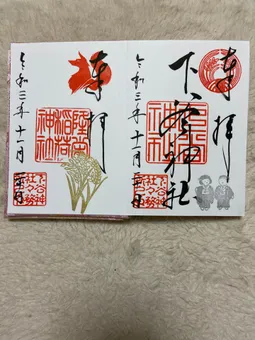 奉拝
下谷神社
令和三年十一月
奉拝
隆栄
稲荷
神社
令和三年十一月